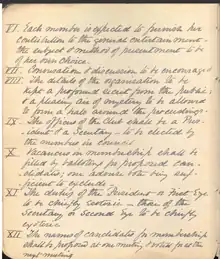 VI. Each member is expected to furnish his
contribution to the general entertainment –
the subject & method of presentment to be
of his own choice.
VII. Conversation & discussion to be encouraged
VIII The details of the organisation to be
kept a profound secret from the public
& a pleasing air of mystery to be allowed
to form a halo around the proceedings –
IX The officers of the Club shall be a Pres-
ident & a Secretary – to be elected by
the members in council
X Vacancies in membership shall be
filled by ballot for proposed can-
didates; one adverse vote being suf-
ficient to exclude.
XI The duties of the President or First Eye
to be chiefly exoteric – those of the
Secretary or Second Eye to be chiefly
esoteric
XII The names of candidates for membership
shall be proposed at one meeting, & voted for at the
next meeting